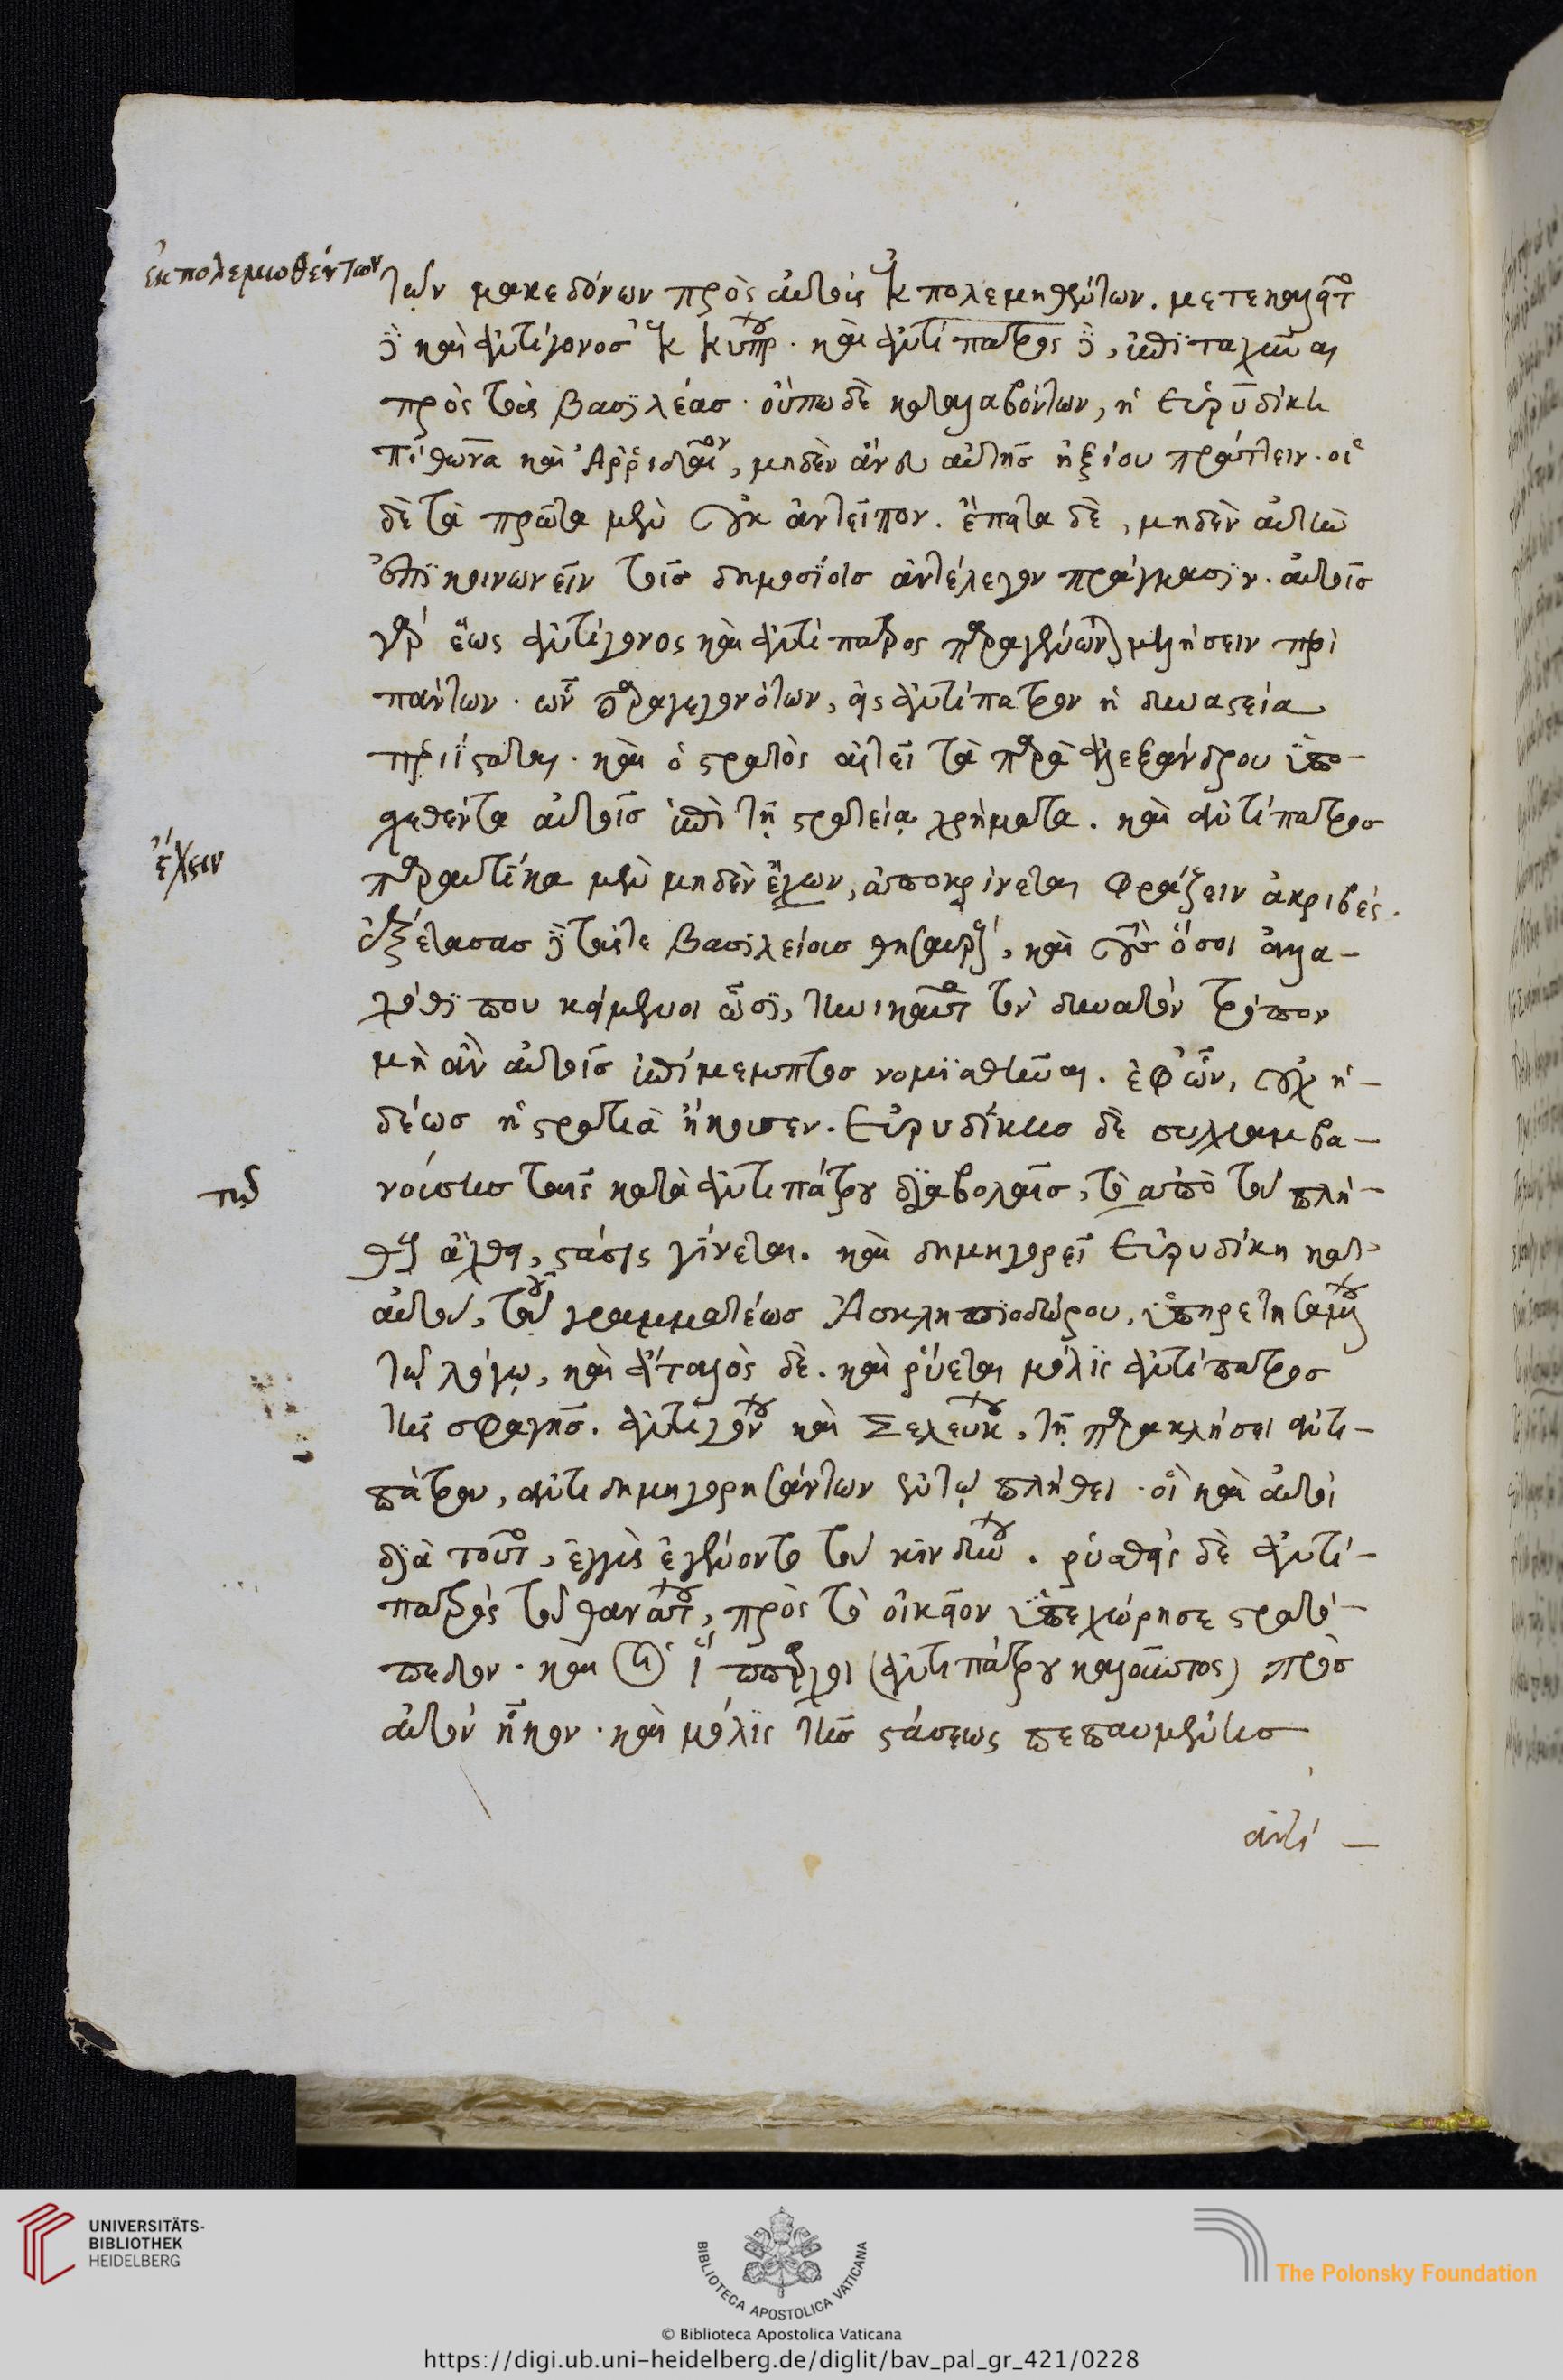 ἐκπολεμωθέντων
τῶν μακεδόνων πρὸς αὐτοὺς ἐκπολεμηθέντων. μετεκαλεῖτο
δὲ καὶ ἀντίγονος ἐκ κύπρου. καὶ ἀντίπατρος δὲ, ἐπιταχῦναι
πρὸς τοὺς βασιλέας. οὔπω δὲ καταλαβόντων, ἡ Εὐρυδίκη
πίθωνα καὶ Ἀρριδαῖον, μηδὲν ἄνευ αὐτῆς ἠξίου πράττειν. οἱ
δὲ τὰ πρῶτα μὲν οὐκ ἀντεῖπον. ἔπειτα δὲ, μηδὲν αὐτὴν
ἐπικοινωνεῖν τοῖς δημοσίοις ἀντέλεγον πράγμασιν. αὐτοῖς
γὰρ ἕως ἀντίγονος καὶ ἀντίπατρος παραγένωνται μελήσειν περὶ
πάντων. ὧν παραγεγονότων, εἰς ἀντίπατρον ἡ δυναστεία
περιίσταται. καὶ ὁ στρατὸς αἰτεῖ τὰ παρὰ ἀλεξάνδρου ὑπο-
σχεθέντα αὐτοῖς ἐπὶ τῇ στρατείᾳ χρήματα. καὶ ἀντίπατρος
ἔχειν
παραυτίκα μὲν μηδὲν ἔχων, ἀποκρίνεται φράζειν ἀκριβές.
ἐξετάσας δὲ τούς τε βασιλείους θησαυροὺς, καὶ τοὺς ὅσοι ἀλλα-
χόθι που κείμενοι ὦσι, τηνικαῦτα τὸν δυνατὸν τρόπον
μὴ ἂν αὐτοῖς ἐπίμεμπτος νομισθῆναι. ἐφ' ὧν, οὐχ ἡ-
δέως ἡ στρατιὰ ἤκουσεν. Εὐρυδίκης δὲ συλλαμβα-
νούσης ταῖς κατὰ ἀντιπάτρου διαβολαῖς, τὸ ἀπὸ τοῦ πλή-
τῷ
θους ἄχθει, στάσις γίνεται. καὶ δημηγορεῖ Εὐρυδίκη κατ'
αὐτοῦ, τοῦ γραμματέως Ἀσκληπιοδώρου, ὑπηρετησαμένου
τῷ λόγῳ, καὶ ἄτταλος δὲ. καὶ ῥύεται μόλις ἀντίπατρος
τῆς σφαγῆς. ἀντιγόνου καὶ Σελεύκου, τῇ παρακλήσει ἀντι-
πάτρου, ἀντιδημηγορησάντων ἐν τῷ πλήθει. οἳ καὶ αὐτοὶ
διὰ τοῦτο, ἐγγὺς ἐγένοντο τοῦ κινδύνου. ῥυσθεὶς δὲ ἀντί-
πατρος τοῦ θανάτου, πρὸς τὸ οἰκεῖον ὑπεχώρησε στρατό-
πεδον. καὶ οἱ ἵππαρχοι (ἀντιπάτρου καλοῦντος) πρὸς
αὐτὸν ἧκον. καὶ μόλις τῆς στάσεως πεπαυμένης
ἀντί -
UNIVERSITÄTS-
BIBLIOTHEK
HEIDELBERG
BIBLIOTECA APOSTOLICA VATICANA
The Polonsky Foundation
© Biblioteca Apostolica Vaticana
https://digi.ub.uni-heidelberg.de/diglit/bav_pal_gr_421/0228